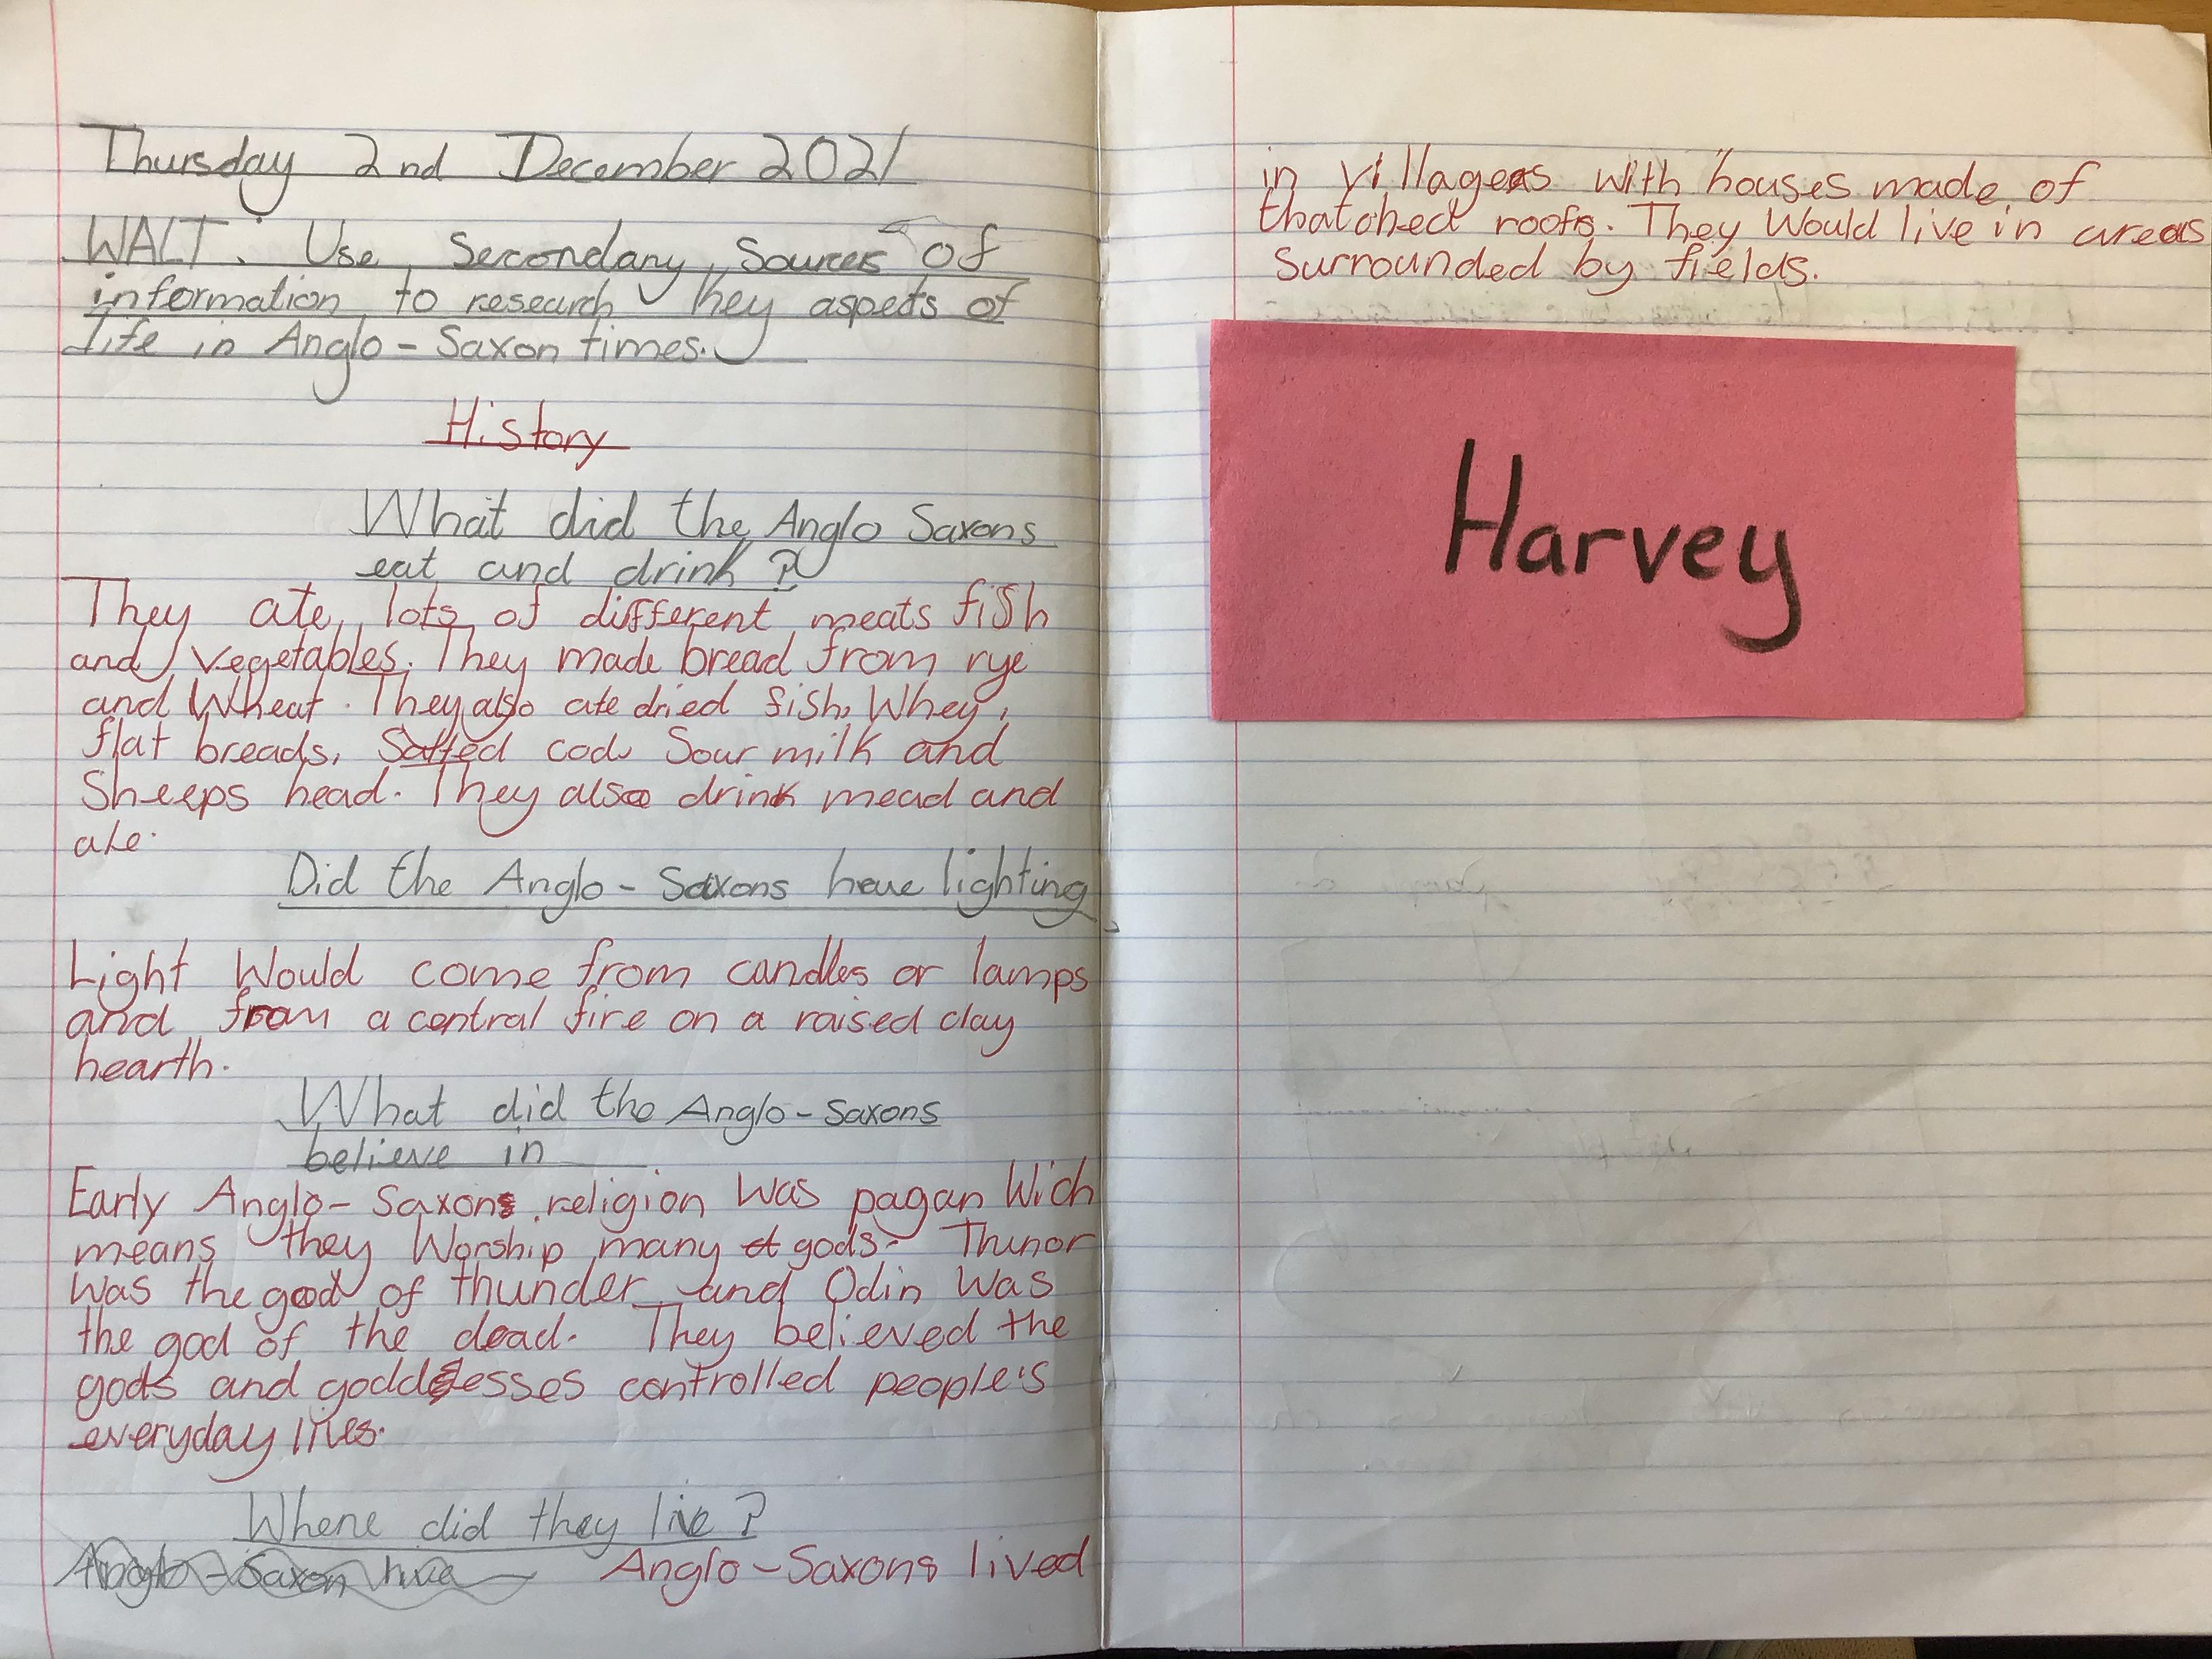 Thursday 2nd December 2021
WALT: Use Secondary Sources of
information to research they aspects of
life in Anglo-Saxon times.
History
What did the Anglo Saxons
eat and drink?
They ate lots of different meats fish
and vegetables. They made bread from rye
and Wheat. They also ate dried fish, Whey,
flat breads, Salted cod, Sour milk and
Sheeps head. They also drink mead and
ale.
Did the Anglo-Saxons have lighting
Light Would come from candles or lamps
and from a central fire on a raised clay
hearth.
What did the Anglo-Saxons
believe in
Early Anglo-Saxons religion was pagan Wich
means they Worship many gods. Thunor
was the god of thunder and Odin was
the god of the dead. They believed the
gods and goddesses controlled people's
everyday lives.
Where did they live?
Anglo-Saxon Anglo-Saxons lived
in villages with houses made of
thatched roofs. They Would live in areas
Surrounded by fields.
Harvey